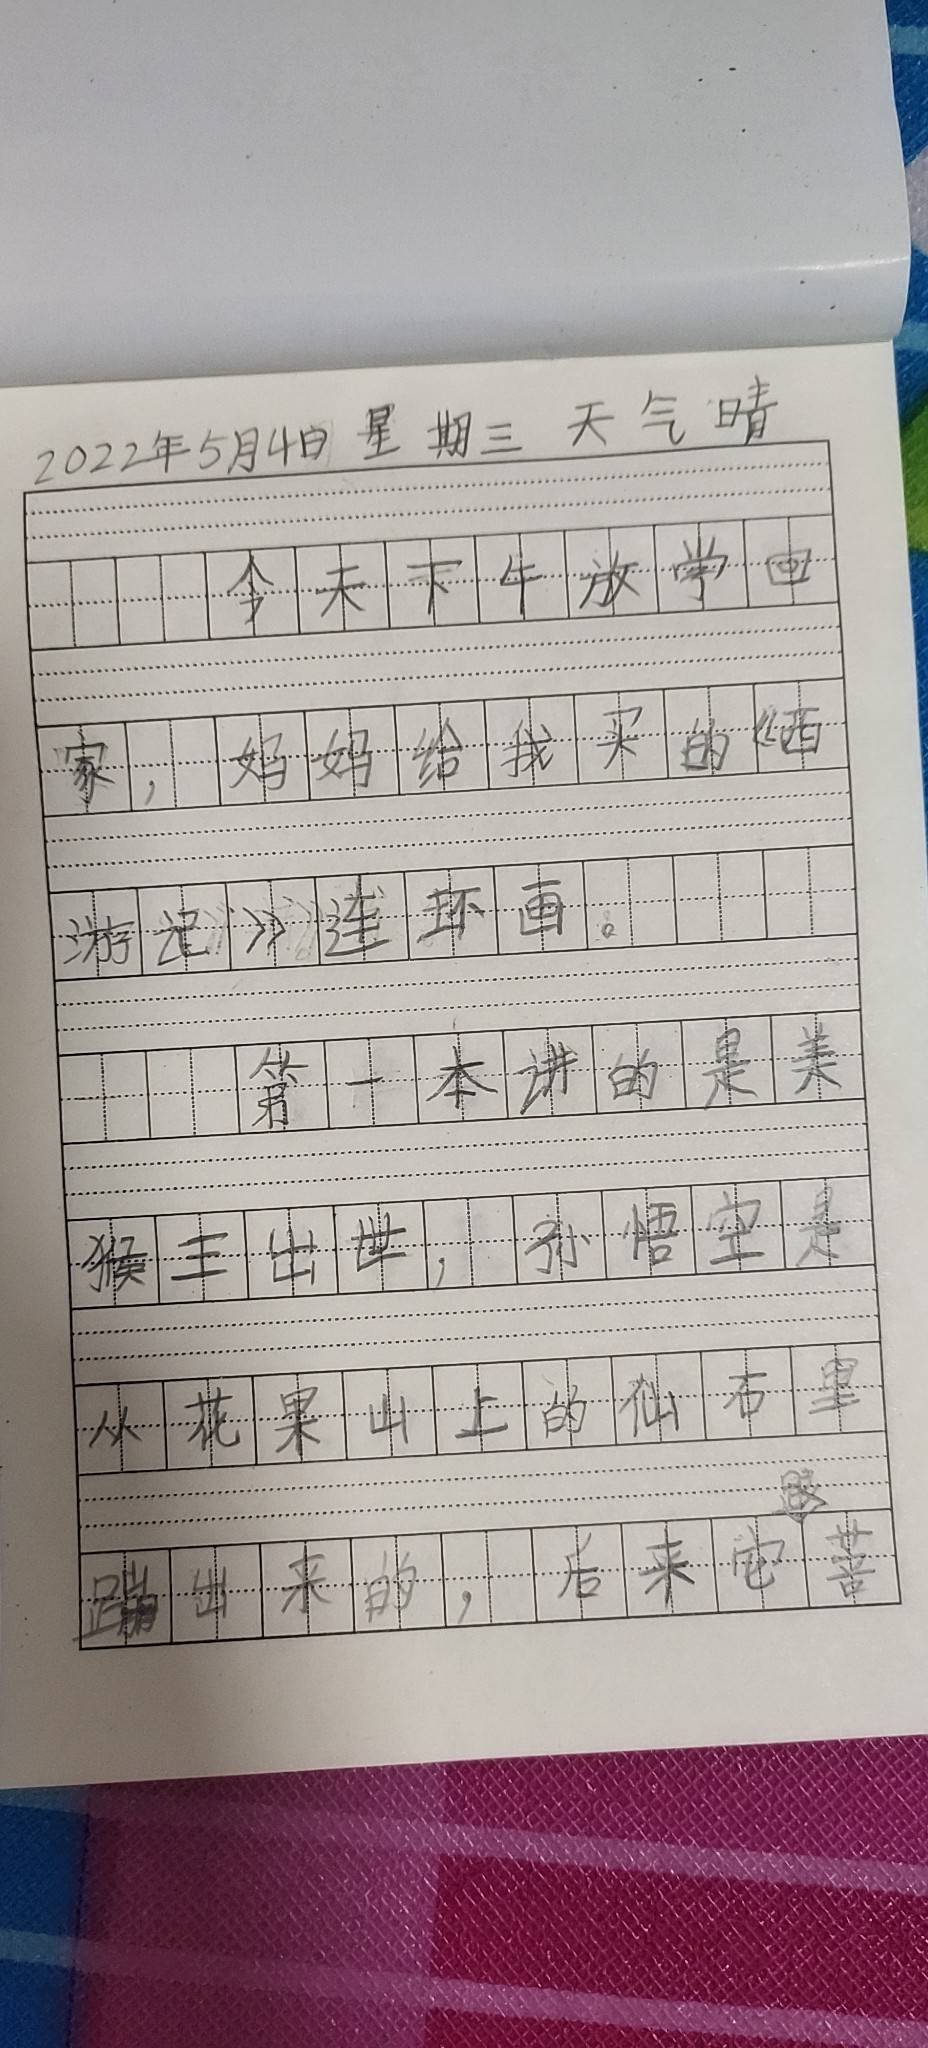 2022年5月4日 星期三 天气晴
今天下午放学回
家，妈妈给我买的《西
游记》连环画。
第一本讲的是美
猴王出世，孙悟空是
从花果山上的仙石里
跟
蹦出来的，后来它菩